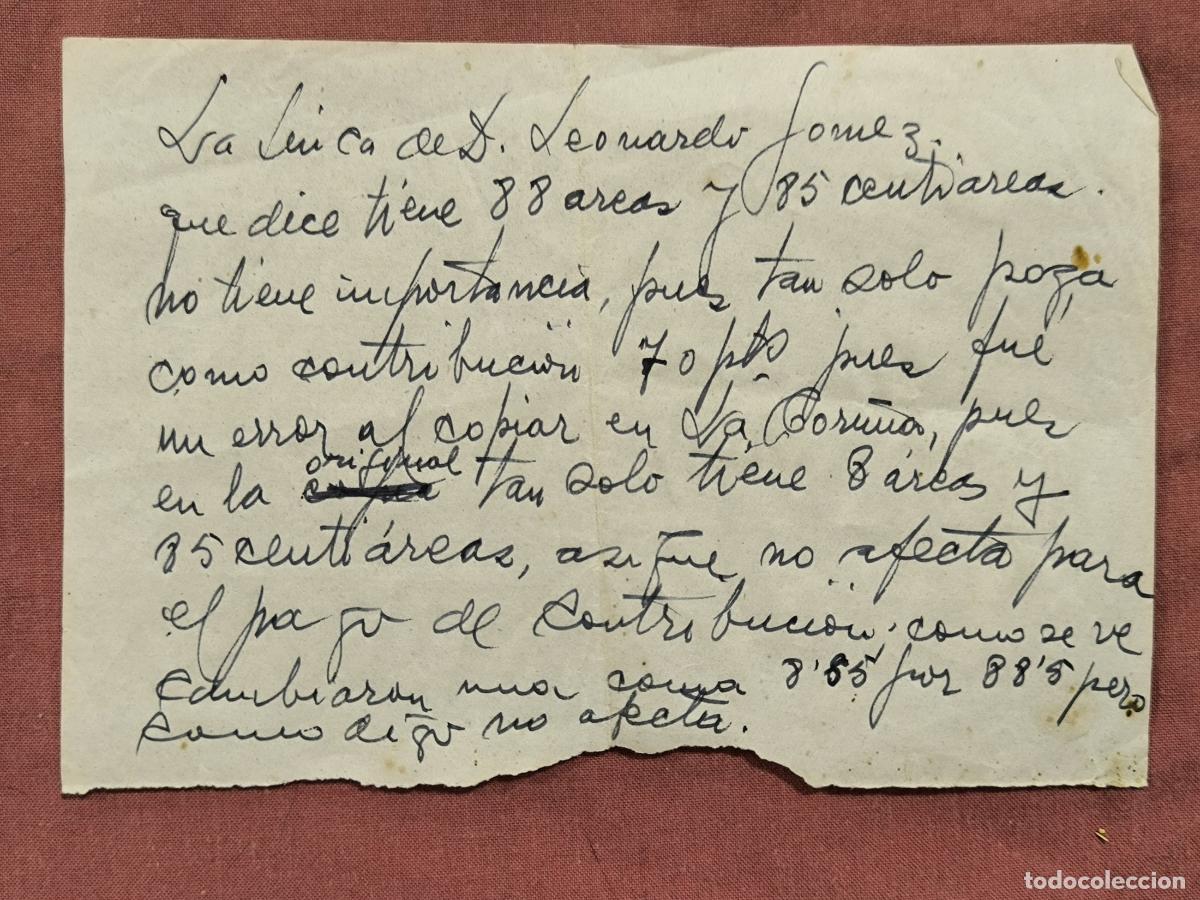 La finca de D. Leonardo Gomez.
que dice tiene 88 areas y 85 centiareas.
no tiene importancia, pues tan solo paga
como contribución 70 pts pues fué
un error al copiar en La Coruña, pues
original
en la tan solo tiene 8 áreas y
85 centiáreas, asi que no afecta para
el pago de contribución. como se ve
cambiaron una coma 8'85 por 88'5 pero
como digo no afecta.
todocoleccion